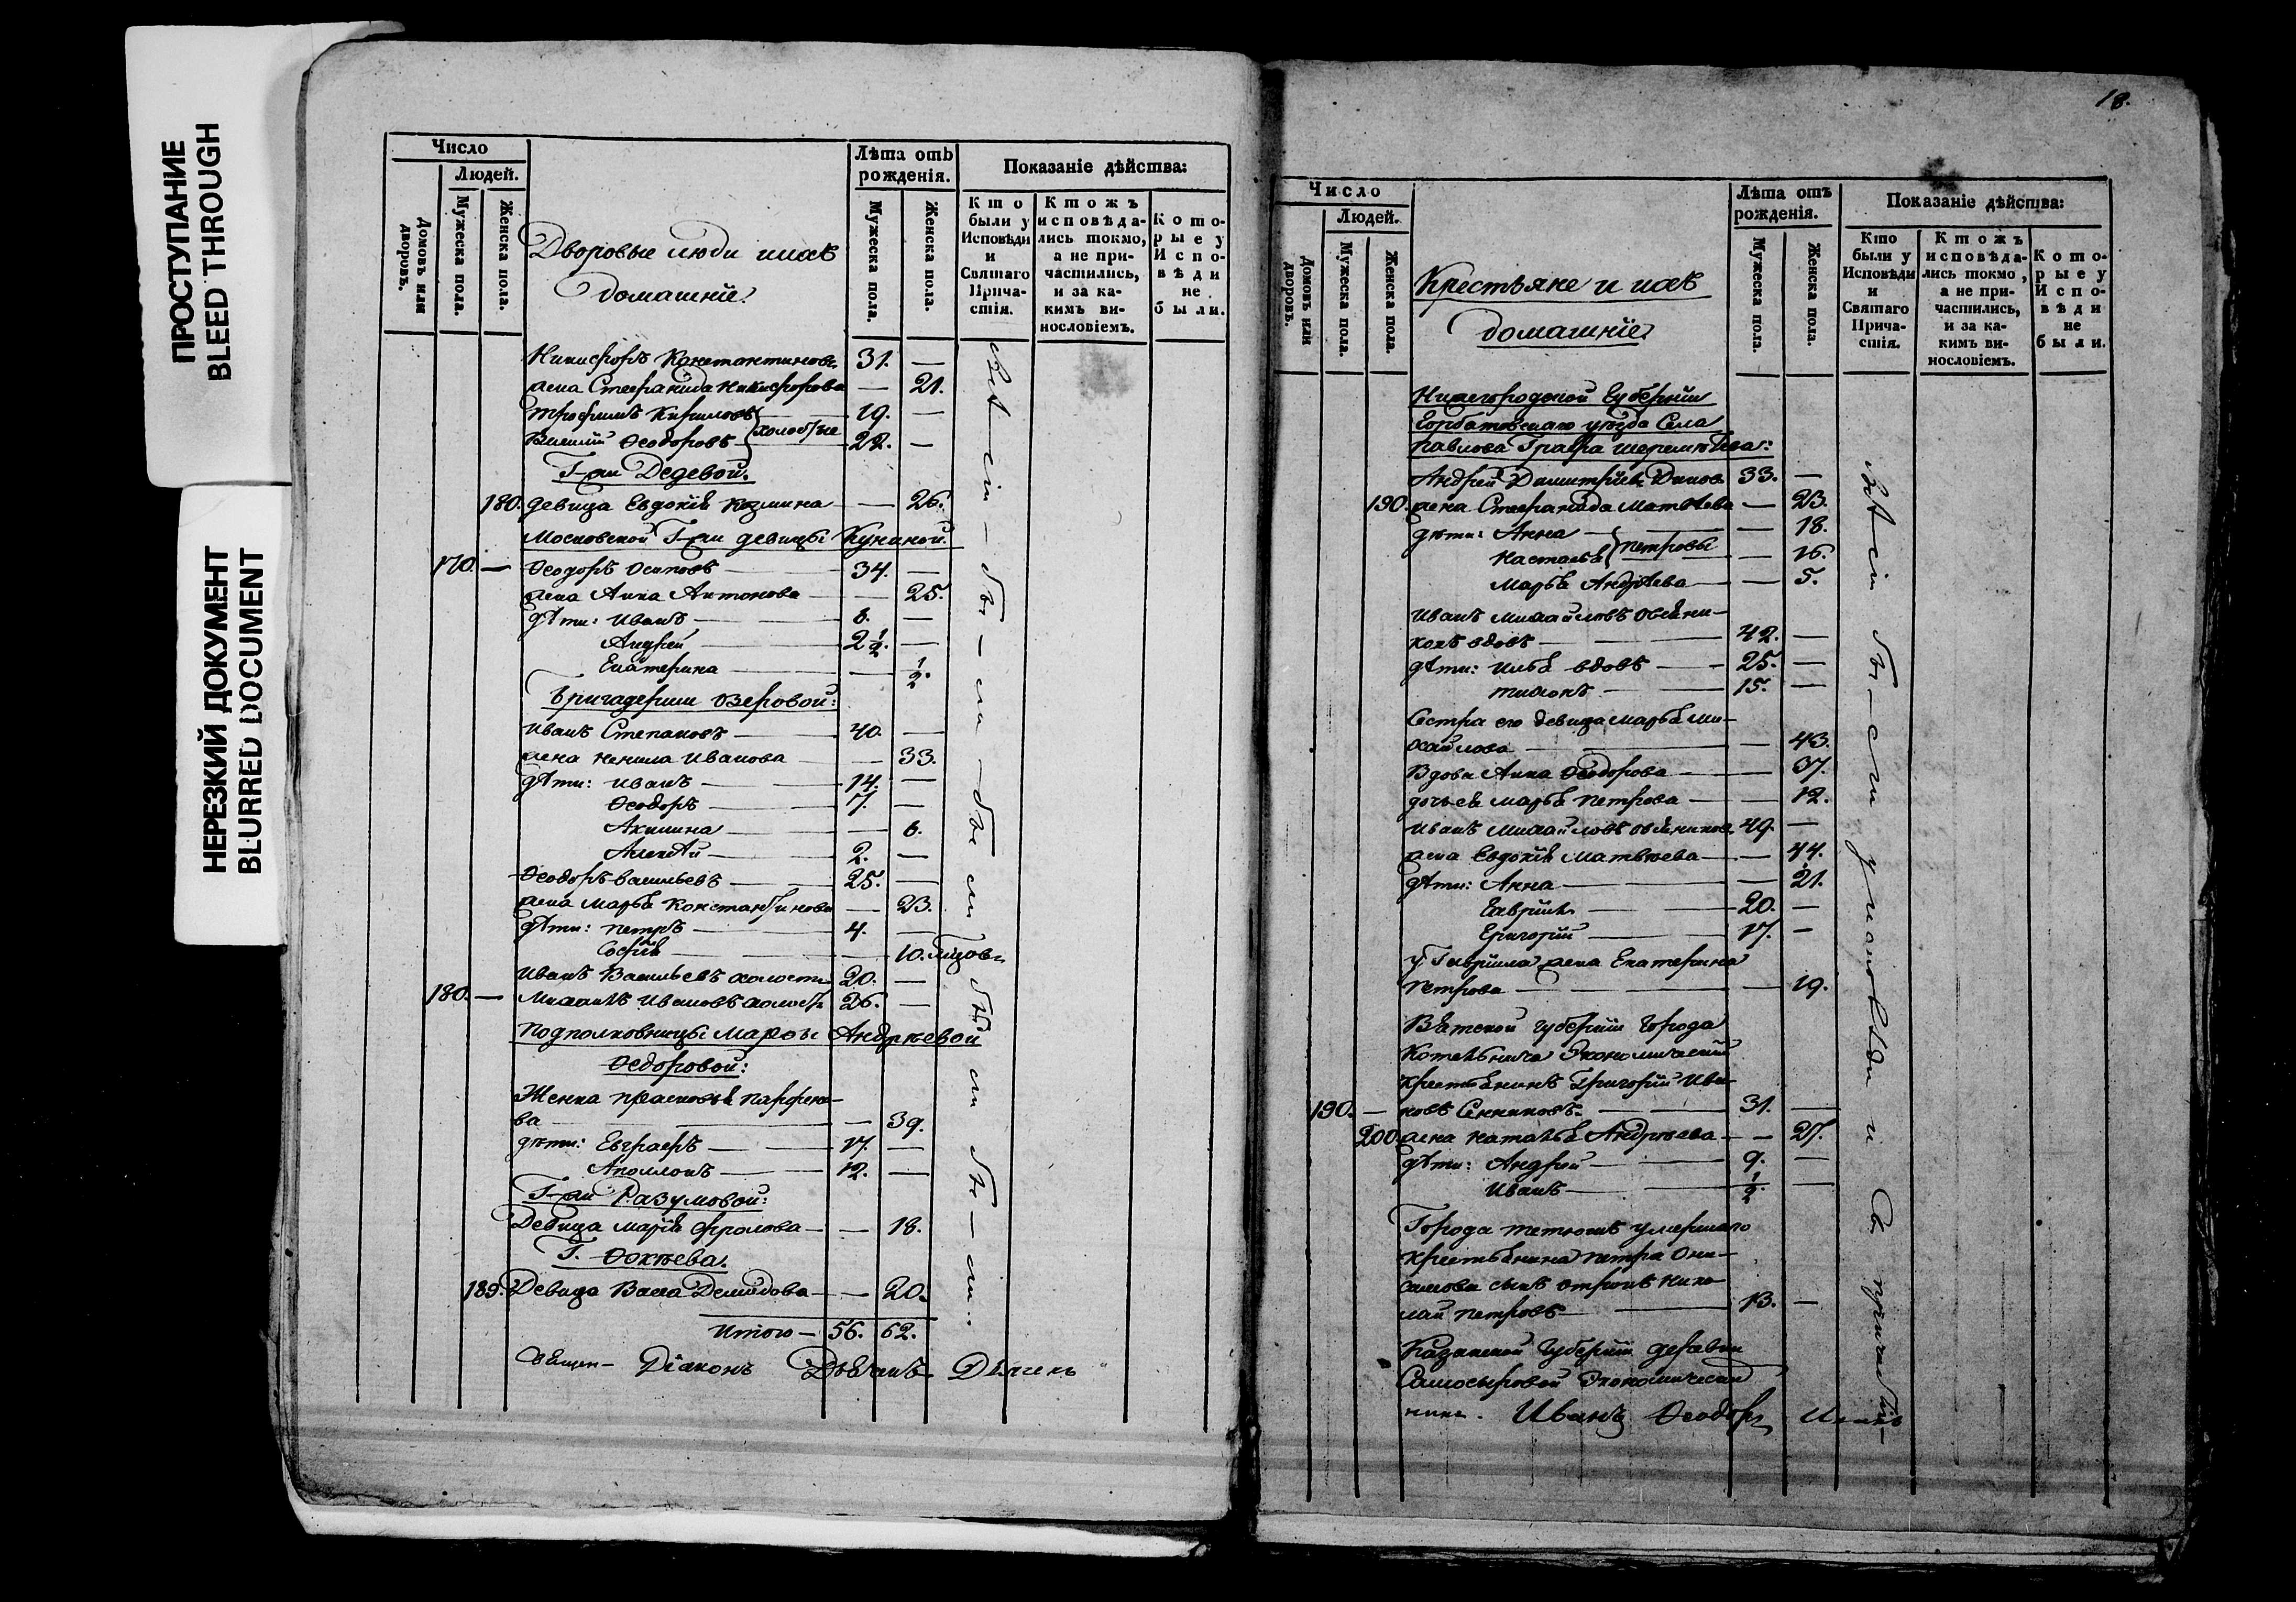 ПРОСТУПАНИЕ
BLEED THROUGH
НЕРЕЗКИЙ ДОКУМЕНТ
BLURRED DOCUMENT
Число
Людей.
Домовъ или дворовъ.
Мужеска пола.
Женска пола.
Дворовые люди и ихъ
домашніе.
Лѣта отъ рожденія.
Мужеска пола.
Женска пола.
Показаніе дѣйства:
Кто были у Исповѣди и Святаго Прича- стія.
Ктожъ исповѣда- лись токмо, а не при- частились, и за ка- кимъ ви- нословіемъ.
Кото- рые у Испо- вѣди не были.
Никифоръ Константиновъ 31. —
жена Стефанида Никифорова — 21.
Трофимъ Кириловъ 19. —
Василій Ѳеодоровъ холостые 22. —
Г-жи Дедевой.
180. девица Евдокія Козмина — 26.
Московской Г-жи девицы Куниной.
170. — Ѳеодоръ Осиповъ 34. —
жена Анна Антонова — 25.
дѣти: Иванъ 6. —
Андрей 2 1/2. —
Екатерина — 1/2.
Бригадерши Зеровой:
Иванъ Степановъ 40. —
жена Ненила Иванова — 33.
дѣти: Иванъ 14. —
Ѳеодоръ 7. —
Акилина — 6.
Алексѣй 2. —
Ѳеодоръ Васильевъ 25. —
жена Марья Константинова — 23.
дѣти: Петръ 4. —
Софія — 10.
Иванъ Васильевъ холостъ 20. —
180. — Михаилъ Ивановъ холостъ 26. —
Подполковницы Марфы Андрѣевой
Ѳедоровой:
Женка Прасковья Парфено-
ва — 39.
дѣти: Евграфъ 17. —
Аполлонъ 12. —
Г-жи Разумовой:
Девица Марія Фролова — 18.
Г.
189. Девица Васса Демидова — 20.
Итого — 56. 62.
Діаконъ
18.
Число
Людей.
Домовъ или дворовъ.
Мужеска пола.
Женска пола.
Крестьяне и ихъ
домашніе.
Лѣта отъ рожденія.
Мужеска пола.
Женска пола.
Показаніе дѣйства:
Кто были у Исповѣди и Святаго Прича- стія.
Ктожъ исповѣда- лись токмо, а не при- частились, и за ка- кимъ ви- нословіемъ.
Кото- рые у Испо- вѣди не были.
Нижегородской Губерніи
Горбатовскаго уѣзда Села
Павлова Графа Шереметева:
Андрей Димитріевъ 33. —
190. жена Стефанида Матвѣева — 23.
дѣти: Анна — 18.
Настасья Петровы — 16.
Марья Андрѣева — 5.
Иванъ Михайловъ Овсяни-
ковъ вдовъ 42. —
дѣти: Илья вдовъ 25. —
Тихонъ 15. —
Сестра его девица Марья Ми-
хайлова — 43.
Вдова Анна Ѳеодорова — 37.
дочь ея Марья Петрова — 12.
Иванъ Михайловъ Овсяниковъ 49. —
жена Евдокія Матвѣева — 44.
дѣти: Анна — 21.
Гавріилъ 20. —
Григорій 17. —
У Гавріила жена Екатерина
Петрова — 19.
Вятской Губерніи Города
Котельнича Экономическій
крестьянинъ Григорій Ива-
190. — новъ Санниковъ 31. —
200. жена Наталья Андрѣева — 27.
дѣти: Андрей 9. —
Иванъ 1/2. —
Города Тетюшъ умершаго
крестьянина Петра Они-
симова сынъ отрокъ Нико-
лай Петровъ 13. —
Казанской Губерніи деревни
Самосыровой Экономической
Иванъ Ѳеодоръ